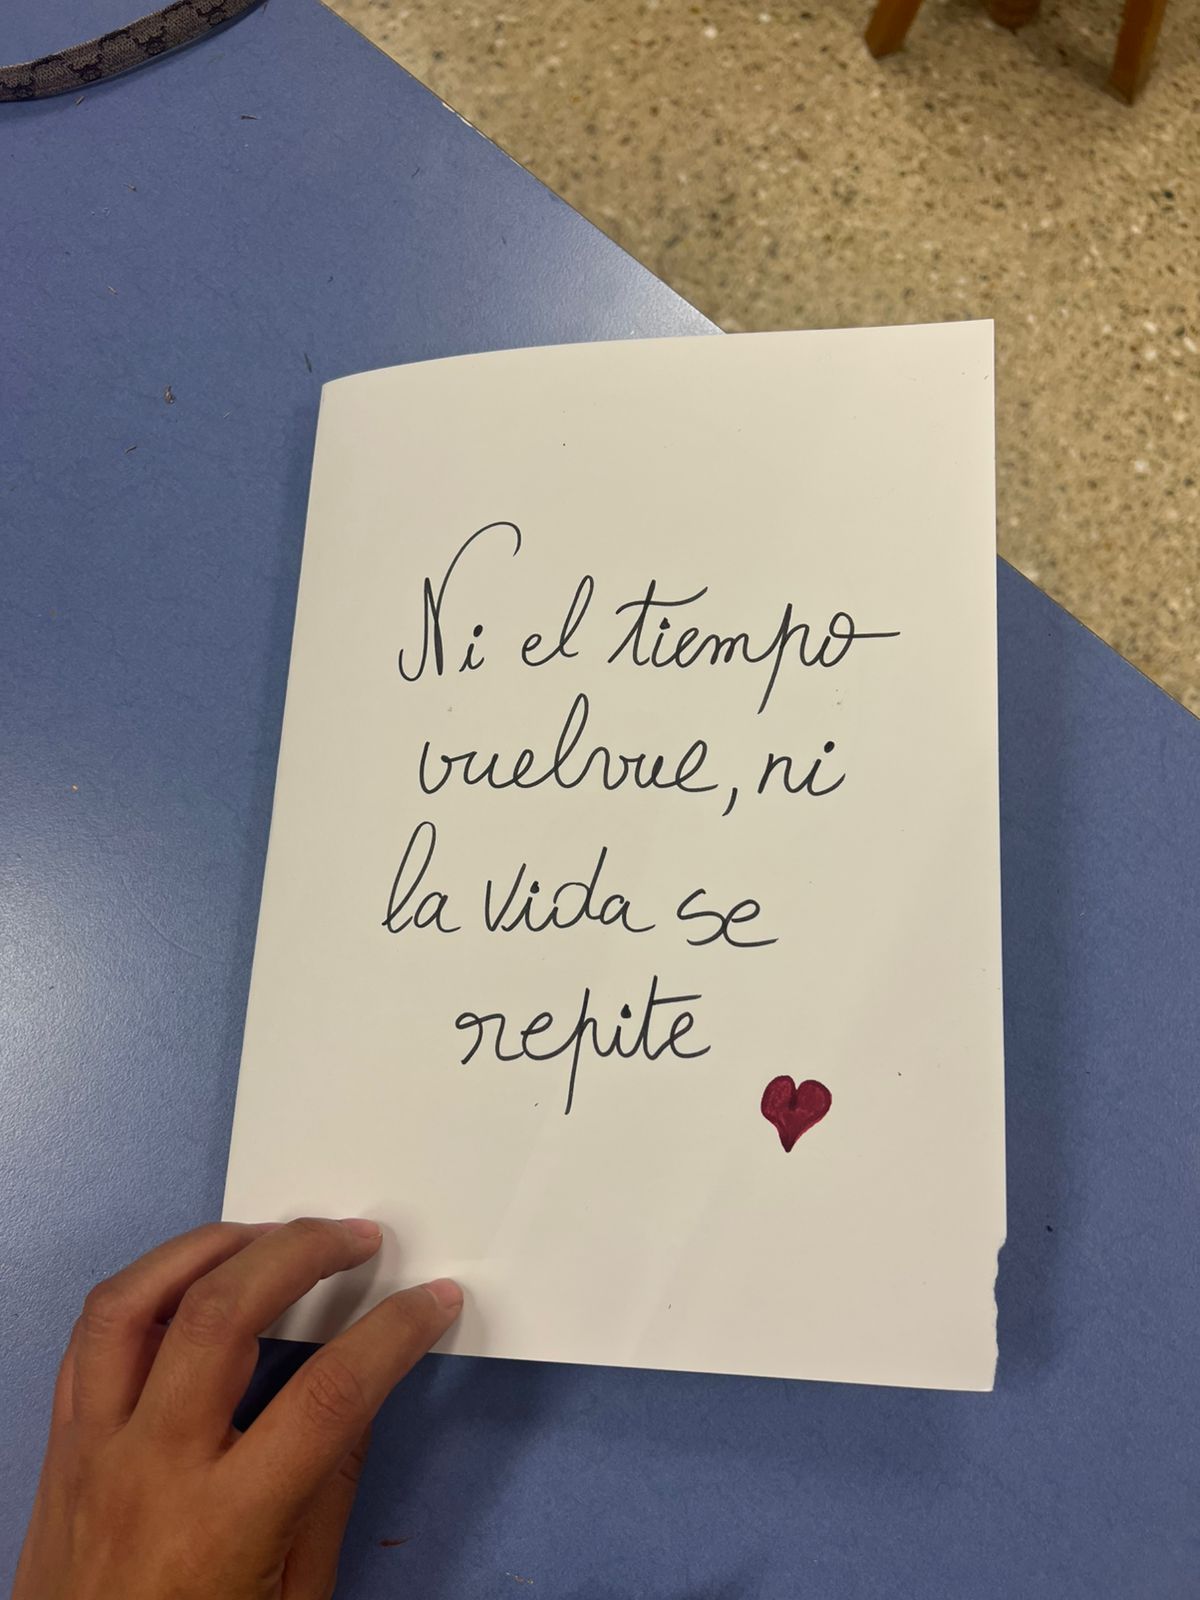 Ni el tiempo
vuelvue, ni
la vida se
repite